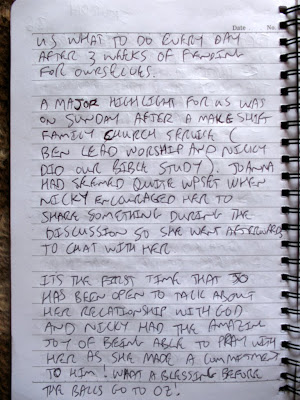 Date No.
US WHAT TO DO EVERY DAY
AFTER 3 WEEKS OF FENDING
FOR OURSELVES.
A MAJOR HIGHLIGHT FOR US WAS
ON SUNDAY AFTER A MAKE SHIFT
FAMILY CHURCH SERVICE (
BEN LEAD WORSHIP AND NICKY
DID OUR BIBLE STUDY). JOANNA
HAD SEEMED QUITE UPSET WHEN
NICKY ENCOURAGED HER TO
SHARE SOMETHING DURING THE
DISCUSSION SO SHE WENT AFTERWARDS
TO CHAT WITH HER
ITS THE FIRST TIME THAT JO
HAS BEEN OPEN TO TALK ABOUT
HER RELATIONSHIP WITH GOD
AND NICKY HAD THE AMAZING
JOY OF BEING ABLE TO PRAY WITH
HER AS SHE MADE A COMMITMENT
TO HIM! WHAT A BLESSING BEFORE
THE BALLS GO TO OZ!